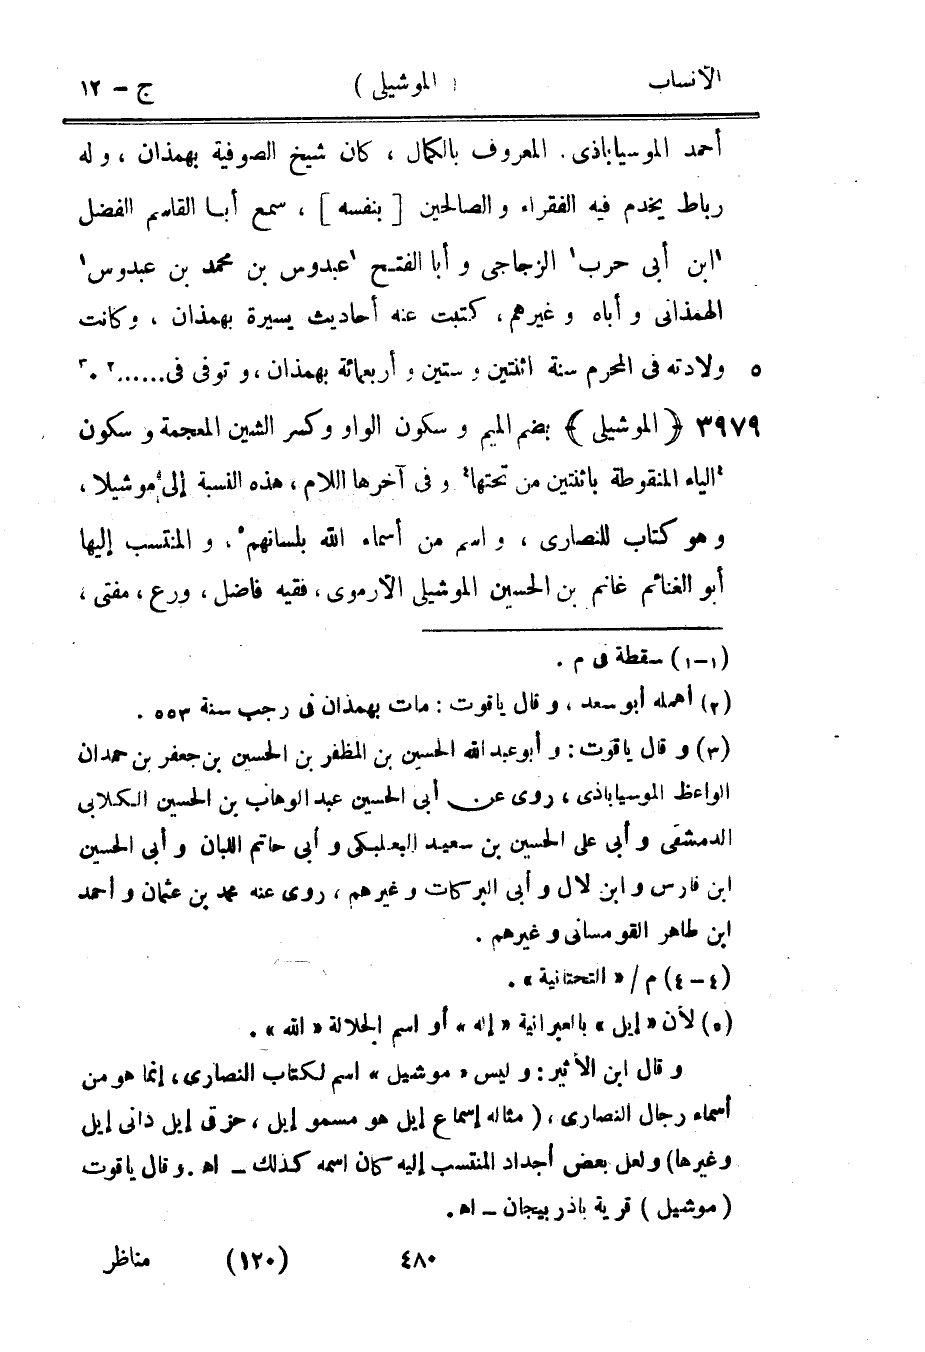 الأنساب ( الموشيلى ) ج – ١٢
أحمد الموسياباذى . المعروف بالكمال ، كان شيخ الصوفية بهمذان ، و له
رباط يخدم فيه الفقراء و الصالحين [ بنفسه ] ، سمع أبا القاسم الفضل
١ابن أبى حرب١ الزجاجى و أبا الفتح ١عبدوس بن محمد بن عبدوس١
الهمذانى و أباه و غيرهم ، كتبت عنه أحاديث يسيرة بهمذان ، وكانت
٥ ولادته فى المحرم سنة اثنتين و ستين و أربعمائة بهمذان ، و توفى فى......٢ .٣
٣٩٧٩ ﴿ الموشيلى ﴾ بضم الميم و سكون الواو وكسر الشين المعجمة و سكون
٤الياء المنقوطة باثنتين من تحتها٤ و فى آخرها اللام ، هذه النسبة إلى موشيلا ،
و هو كتاب للنصارى ، و اسم من أسماء الله بلسانهم٥ ، و المنتسب إليها
أبو الغنائم غانم بن الحسين الموشيلى الأرموى ، فقيه فاضل ، ورع ، مفتى ،
(١–١) سقطة فى م .
(٢) أهمله أبو سعد ، و قال ياقوت : مات بهمذان فى رجب سنة ٥٥٣ .
(٣) و قال ياقوت : و أبوعبد الله الحسين بن المظفر بن الحسين بن جعفر بن حمدان
الواعظ الموسياباذى ، روى عن أبى الحسين عبد الوهاب بن الحسين الكلابى
الدمشقى و أبى على الحسين بن سعيد البعلبكى و أبى حاتم اللبان و أبى الحسين
ابن فارس و ابن لال و أبى البركات و غيرهم ، روى عنه محمد بن عثمان و أحمد
ابن طاهر القومسانى و غيرهم .
(٤–٤) م / « التحتانية » .
(٥) لأن « إيل » بالعبرانية « إله » أو اسم الجلالة « الله » .
و قال ابن الأثير : و ليس « موشيل » اسم لكتاب النصارى ، إنما هو من
أسماء رجال النصارى ، ( مثاله إسماع إيل هو مسمو إيل ، حزق إيل دانى إيل
وغيرها ) و لعل بعض أجداد المنتسب إليه كان اسمه كذلك – اه . و قال ياقوت
( موشيل ) قرية باذربيجان – اه .
٤٨٠ (١٢٠) مناظر